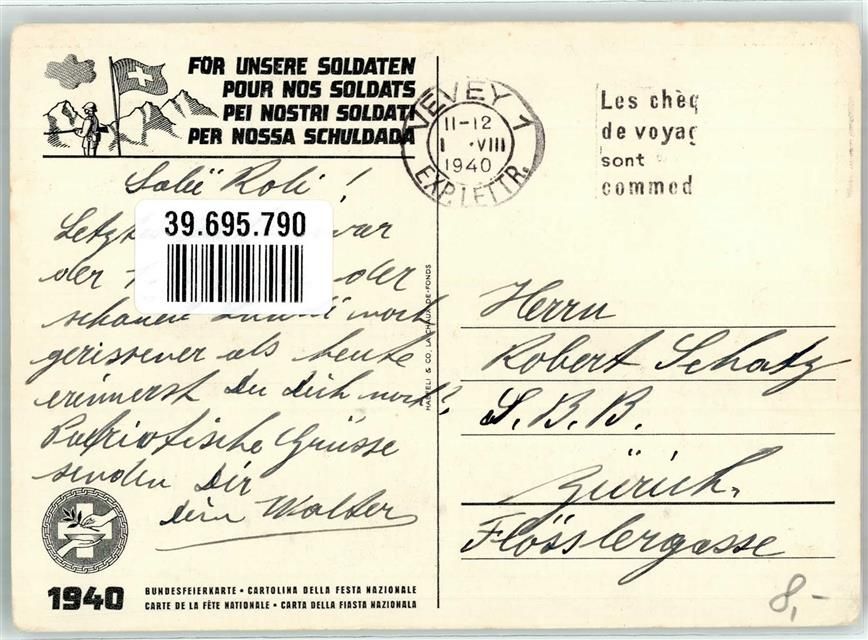 FÜR UNSERE SOLDATEN
POUR NOS SOLDATS
PEI NOSTRI SOLDATI
PER NOSSA SCHULDADA
VEVEY 1
11-12
1 ·VIII
1940
EXP. LETTR.
Les chèq
de voyag
sont
commod
Salü Robi!
39.695.790
war
der
der
noch
gerissener als heute
erinnerst Du Dich noch?
Patriotische Grüsse
senden Dir
dein Walter
HAEFELI & CO. LA CHAUX-DE-FONDS
Herrn
Robert Schatz
S.B.B.
Zürich,
Flösslergasse
1940
BUNDESFEIERKARTE • CARTOLINA DELLA FESTA NAZIONALE
CARTE DE LA FÊTE NATIONALE • CARTA DELLA FIASTA NAZIONALA
8,-